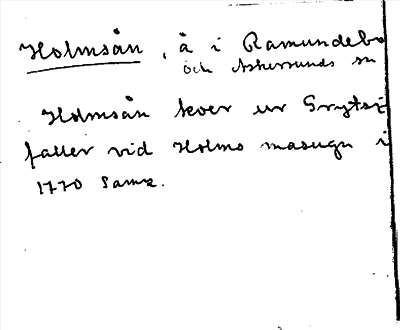 Holmsån, å i Ramundebo
och Askersunds sn
Holmsån kver ur Grytsi
faller vid Holms masugn i
1770 Saml.